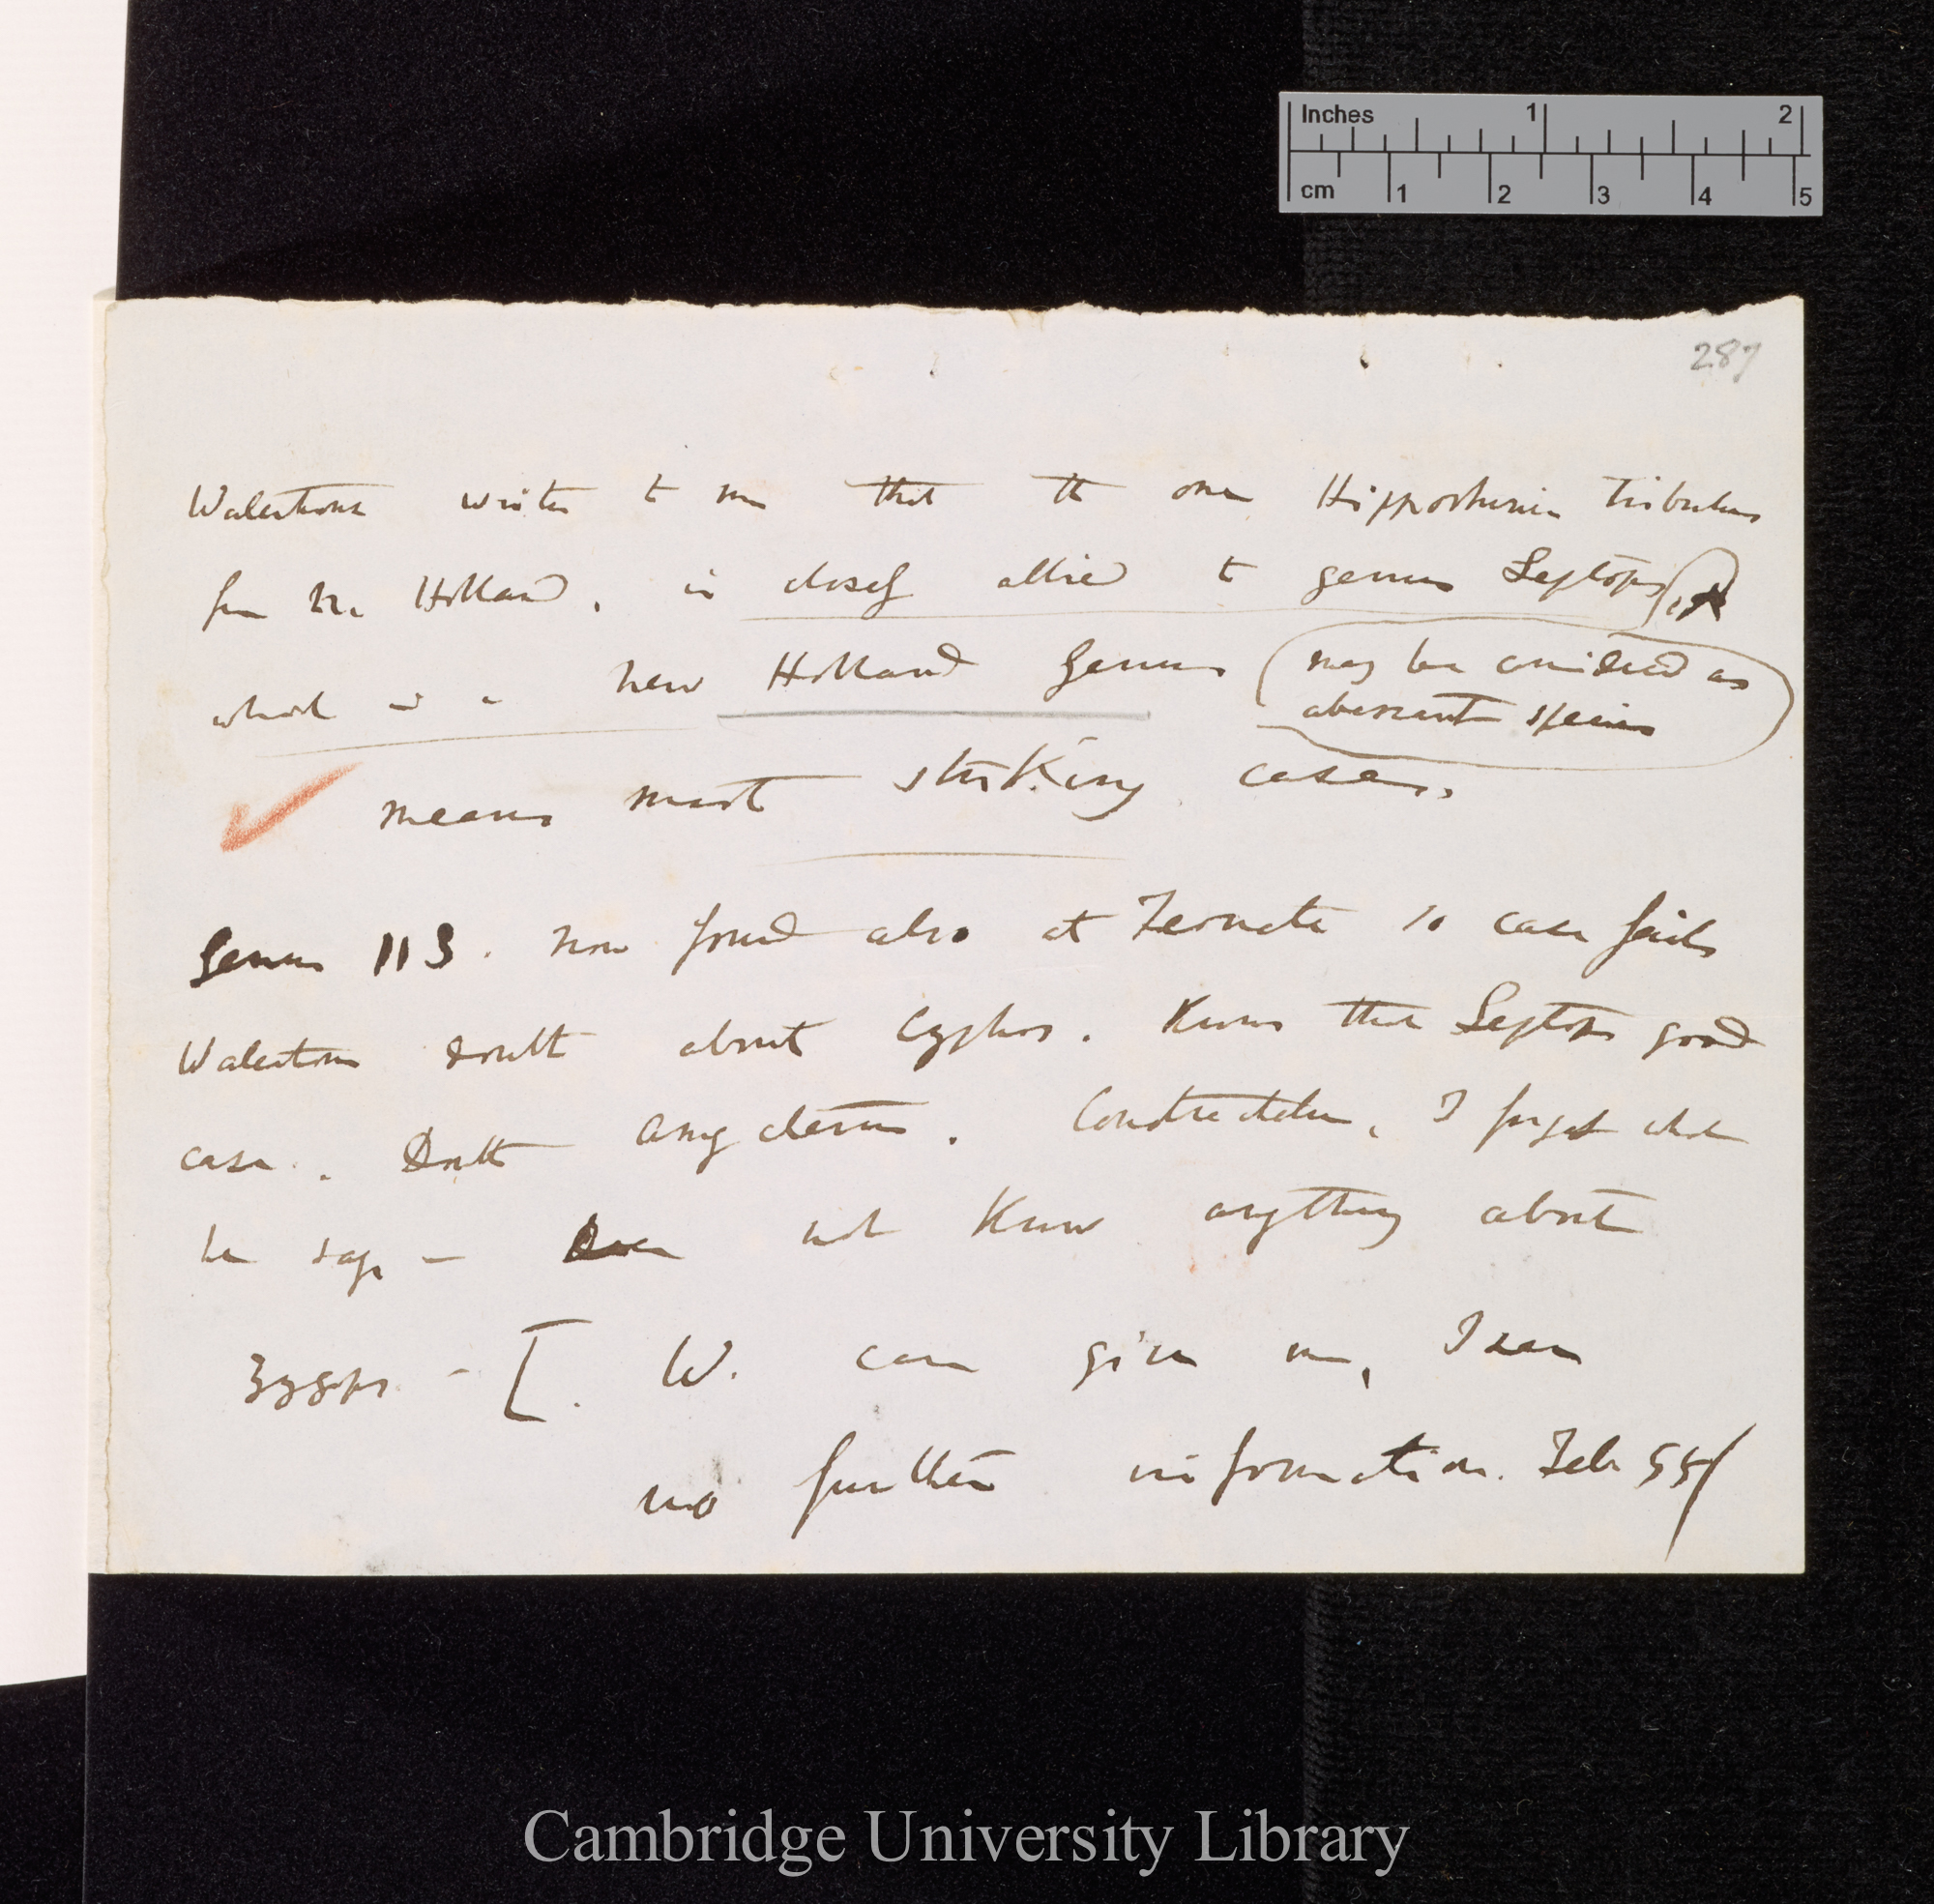 Inches 1 2
cm 1 2 3 4 5
287
Walaston writes to me that the one Hipporhinus tribulus
from N. Holland, is closely allied to genus Leptops
which is a new Holland genus (may be considered as
aberrant species)
means most striking case.
Genus 113. now found also at Ternate so case fails
Walaston doubts about Cyphus. Knows that Leptops good
case. Doubts. I forget what
he says — Does not know anything about
Zygops — [. W. can give me, I see
no further information. Feb 55/
Cambridge University Library